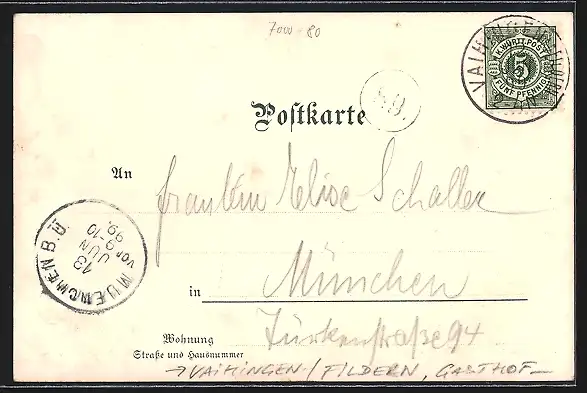 7000 80
K. WÜRTT. POST
5
FÜNF PFENNIG
VAIHINGEN
59.
Postkarte
An
Fräulein Elise Schaller
MUENCHEN B.Ü.
13
JUN
VOR 9-10
99.
München
in
Türkenstraße 94
Wohnung
Straße und Hausnummer
→ VAIHINGEN / FILDERN, GASTHOF –